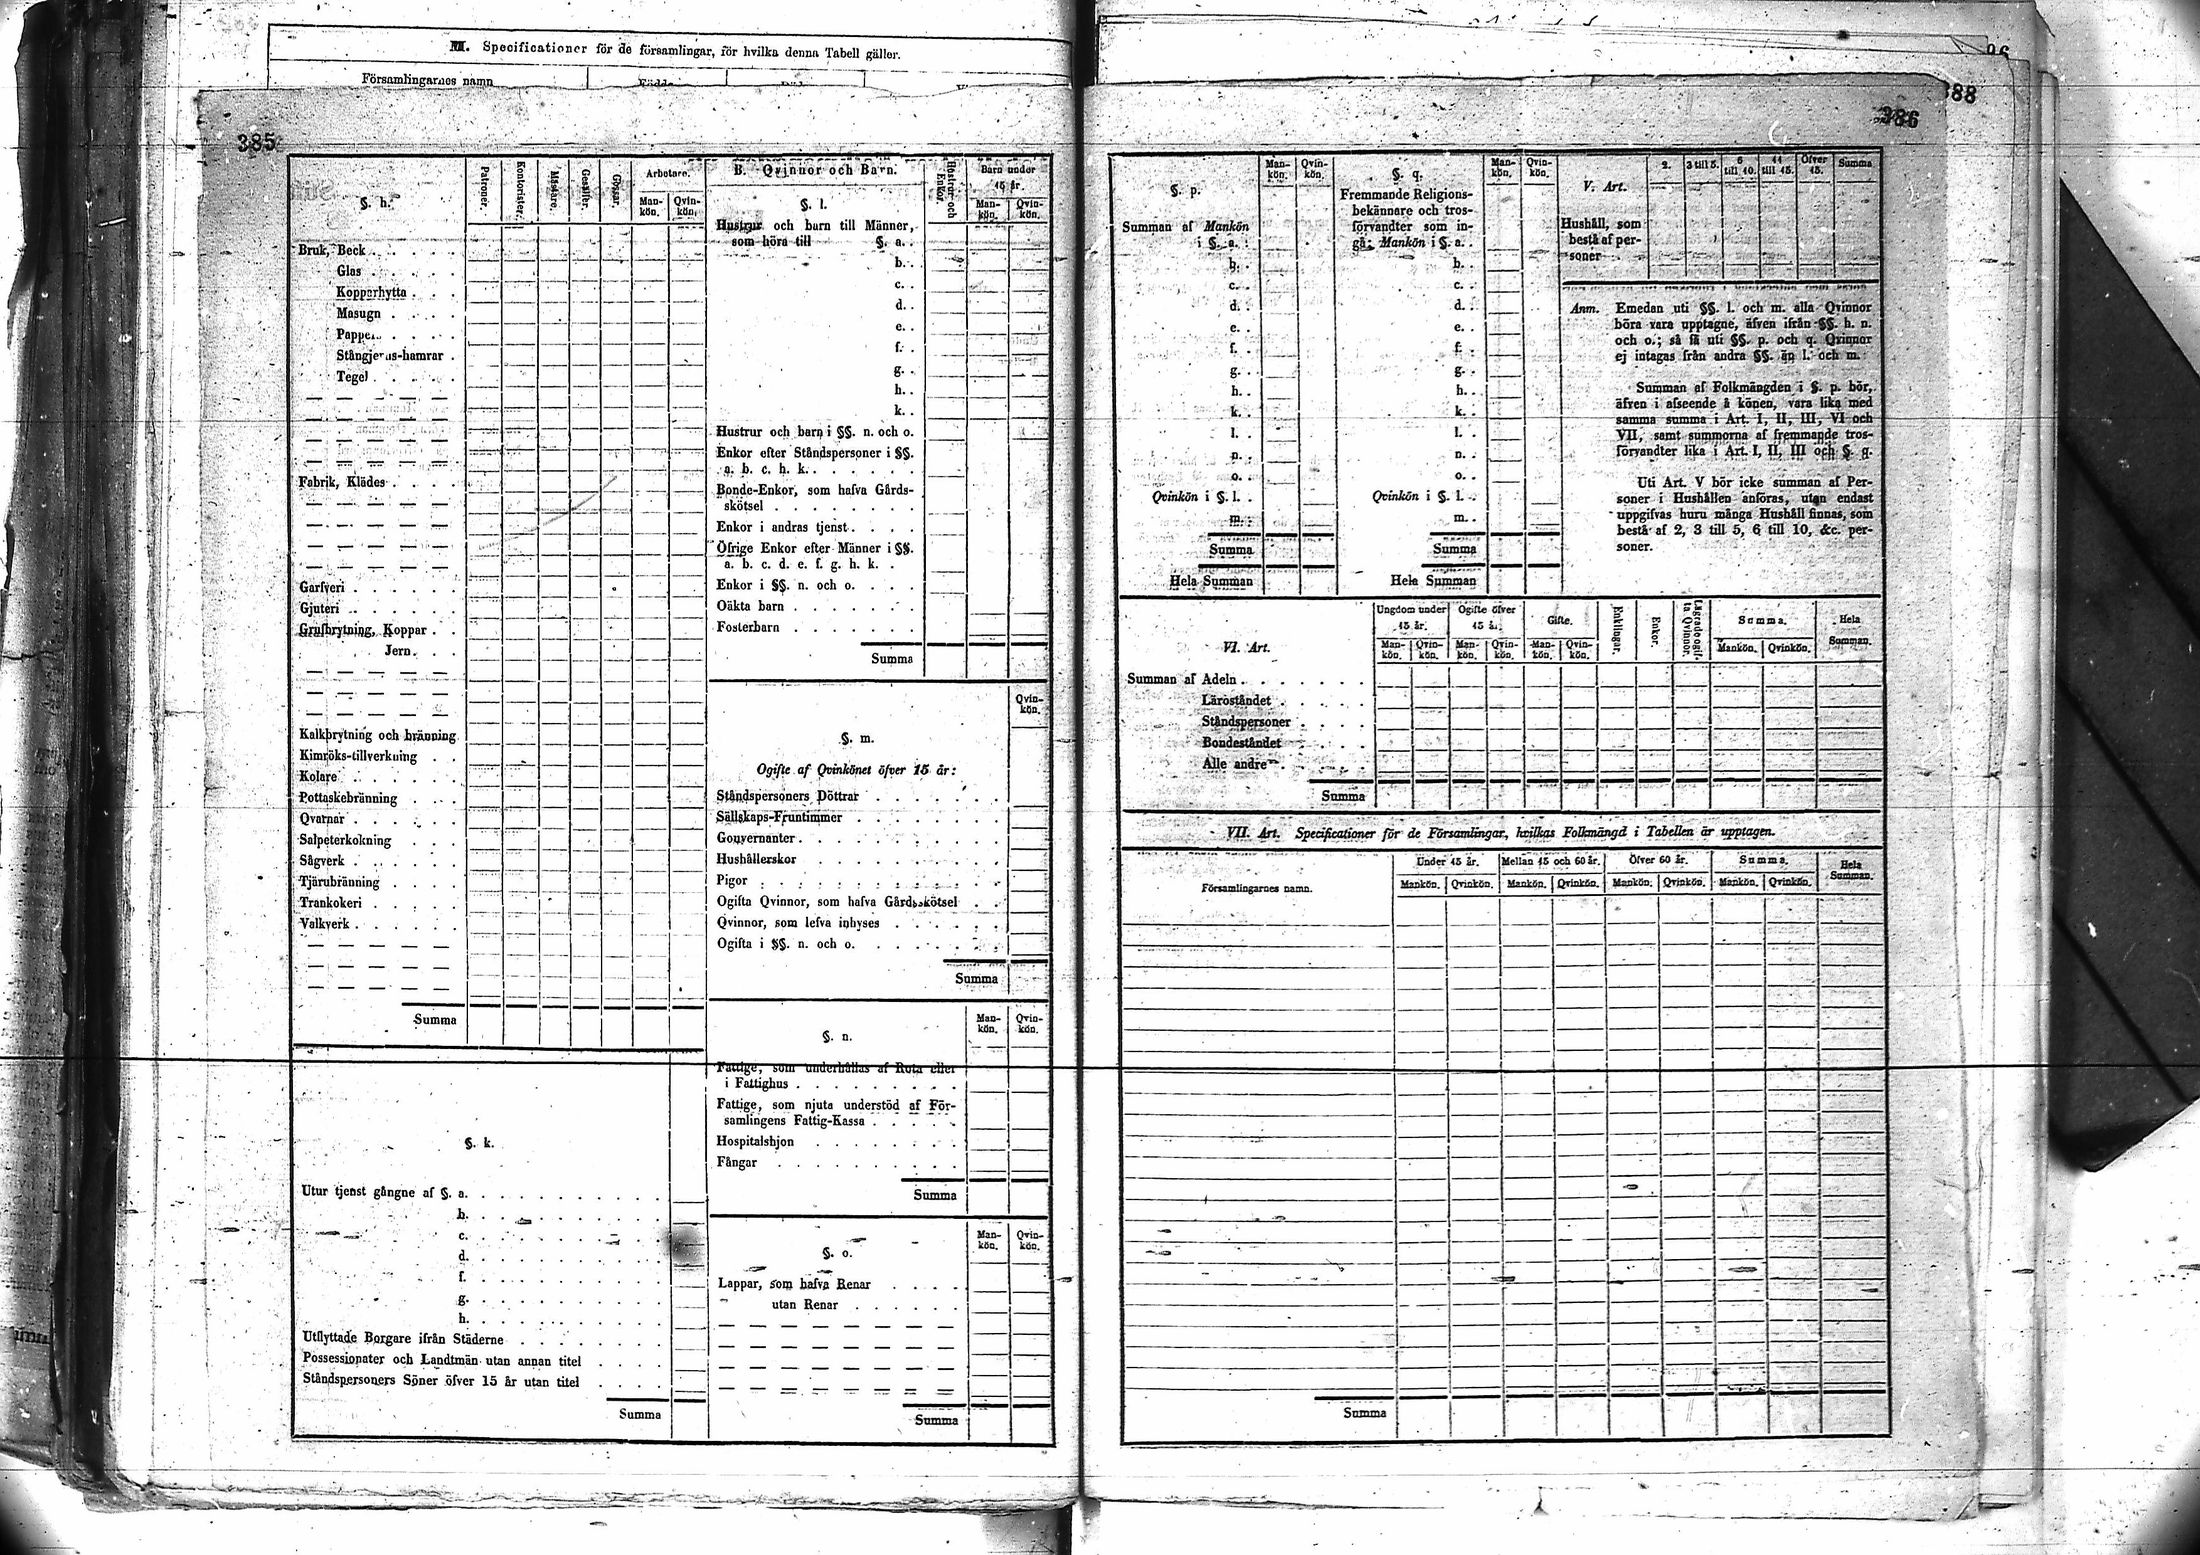 M. Specificationer för de församlingar, för hvilka denna Tabell gäller.
Församlingarnes namn
385
§. h.
Patroner.
Kontorister.
Mästare.
Gesäller.
Gossar.
Arbetare.
Man-
kön.
Qvin-
kön.
Bruk, Beck
Glas
Kopparhytta
Masugn
Stångjerns-hamrar
Tegel
Fabrik, Klädes
Garfveri
Gjuteri
Grufbrytning, Koppar
Jern
Kalkbrytning och bränning
Kimröks-tillverkning
Kolare
Pottaskebränning
Qvarnar
Salpeterkokning
Sågverk
Tjärubränning
Trankokeri
Valkverk
Summa
§. k.
Utur tjenst gångne af §. a.
b.
c.
d.
f.
g.
h.
Utflyttade Borgare ifrån Städerne
Possessionater och Landtmän utan annan titel
Ståndspersoners Söner öfver 15 år utan titel
Summa
B. Qvinnor och Barn.
Hustrur och
Enkor.
Barn under
15 år.
Man-
kön.
Qvin-
kön.
§. l.
Hustrur och barn till Männer,
som höra till §. a.
b.
c.
d.
e.
f.
g.
h.
k.
Hustrur och barn i §§. n. och o.
Enkor efter Ståndspersoner i §§.
a. b. c. h. k.
Bonde-Enkor, som hafva Gårds-
skötsel
Enkor i andras tjenst
Öfrige Enkor efter Männer i §§.
a. b. c. d. e. f. g. h. k.
Enkor i §§. n. och o.
Oäkta barn
Fosterbarn
Summa
Qvin-
kön.
§. m.
Ogifte af Qvinkönet öfver 15 år:
Ståndspersoners Döttrar
Sällskaps-Fruntimmer
Gouvernanter
Hushållerskor
Pigor
Ogifta Qvinnor, som hafva Gårdsskötsel
Qvinnor, som lefva inhyses
Ogifta i §§. n. och o.
Summa
Man-
kön.
Qvin-
kön.
§. n.
Fattige, som underhållas af Rota eller
i Fattighus
Fattige, som njuta understöd af För-
samlingens Fattig-Kassa
Hospitalshjon
Fångar
Summa
Man-
kön.
Qvin-
kön.
§. o.
Lappar, som hafva Renar
utan Renar
Summa
388
386
§. p.
Man-
kön.
Qvin-
kön.
Summan af Mankön
i §. a.
b.
c.
d.
e.
f.
g.
h.
k.
l.
n.
o.
Qvinkön i §. l.
m.
Summa
Hela Summan
§. q.
Man-
kön.
Qvin-
kön.
Fremmande Religions-
bekännare och tros-
förvandter som in-
gå: Mankön i §. a.
b.
c.
d.
e.
f.
g.
h.
k.
l.
n.
o.
Qvinkön i §. l.
m.
Summa
Hela Summan
V. Art.
2.
3 till 5.
6
till 10.
11
till 15.
Öfver
15.
Summa
Hushåll, som
bestå af per-
soner
Anm. Emedan uti §§. l. och m. alla Qvinnor
böra vara upptagne, äfven ifrån §§. h. n.
och o.; så få uti §§. p. och q. Qvinnor
ej intagas från andra §§. än l. och m.
Summan af Folkmängden i §. p. bör,
äfven i afseende å könen, vara lika med
samma summa i Art. I, II, III, VI och
VII, samt summorna af fremmande tros-
förvandter lika i Art. I, II, III och §. q.
Uti Art. V bör icke summan af Per-
soner i Hushållen anföras, utan endast
uppgifvas huru många Hushåll finnas, som
bestå af 2, 3 till 5, 6 till 10, &c. per-
soner.
VI. Art.
Ungdom under
15 år.
Ogifte öfver
15 år.
Gifte.
Enklingar.
Enkor.
Lägrade ogif-
ta Qvinnor.
Summa.
Hela
Summan.
Man-
kön.
Qvin-
kön.
Man-
kön.
Qvin-
kön.
Man-
kön.
Qvin-
kön.
Mankön.
Qvinkön.
Summan af Adeln
Läroståndet
Ståndspersoner
Bondeståndet
Alle andre
Summa
VII. Art. Specificationer för de Församlingar, hvilkas Folkmängd i Tabellen är upptagen.
Församlingarnes namn.
Under 15 år.
Mellan 15 och 60 år.
Öfver 60 år.
Summa.
Hela
Summan.
Mankön.
Qvinkön.
Mankön.
Qvinkön.
Mankön.
Qvinkön.
Mankön.
Qvinkön.
Summa